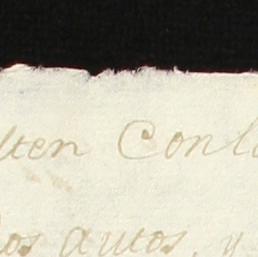 lten Conlo
los autos, y